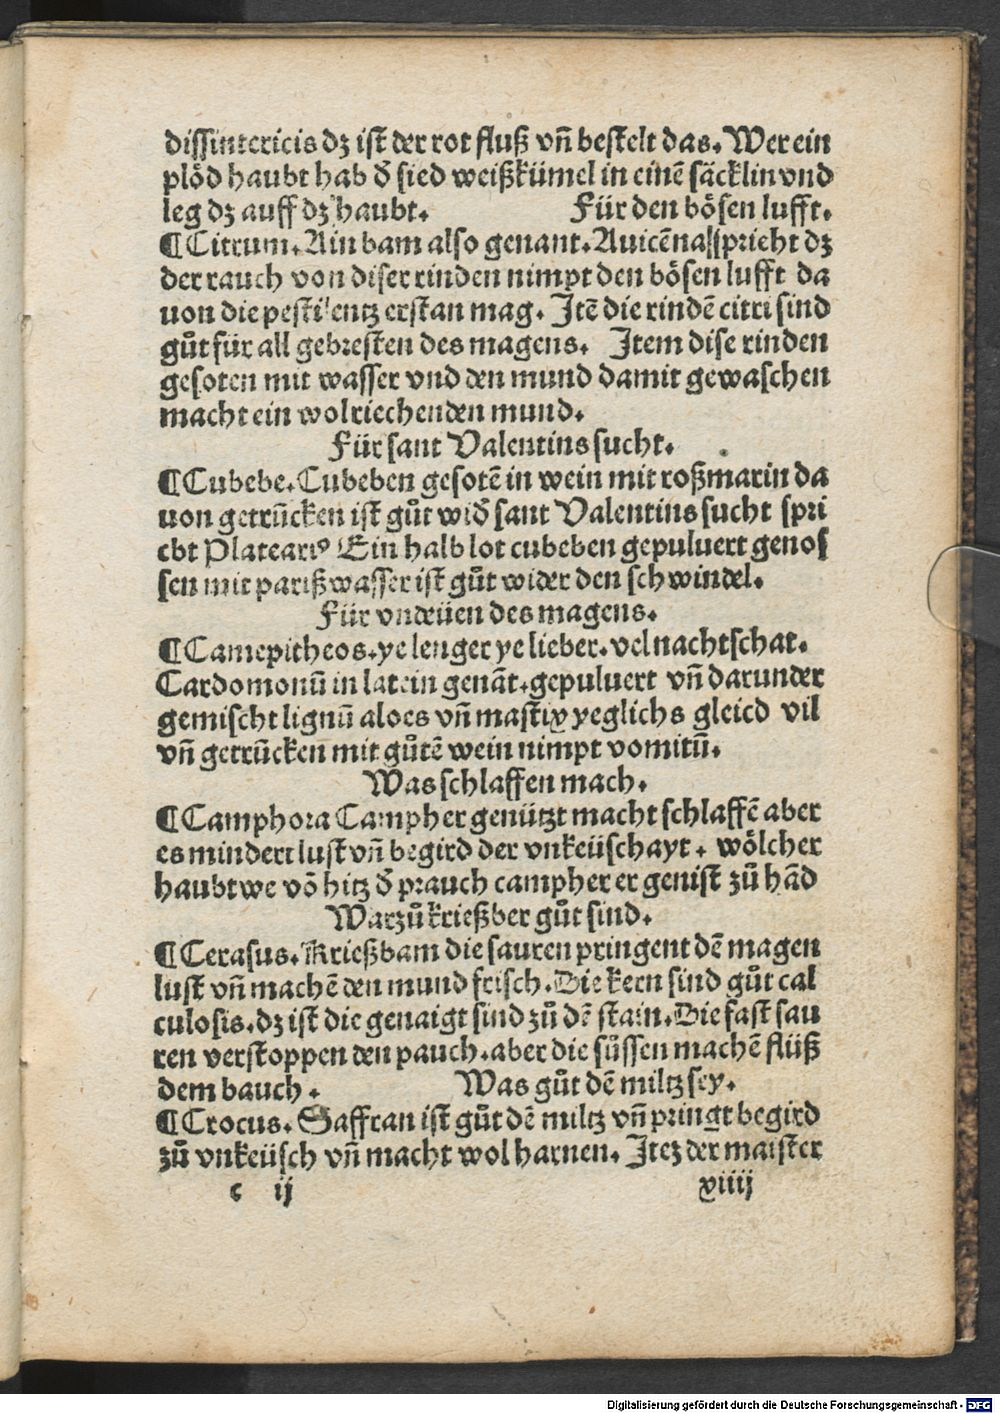 dissintericis dʒ ist der rot fluß vn̄ bestelt das. Wer ein
plöd haubt hab đ sied weißkümel in einē säcklin vnd
leg dʒ auff dʒ haubt. Für den bösen lufft.
¶Citrum. Ain bam also genant. Auicēna spricht dʒ
der rauch von diser rinden nimpt den bösen lufft da
uon die pestilentz erstan mag. Itē die rindē citri sind
gůt für all gebresten des magens. Item dise rinden
gesoten mit wasser vnd den mund damit gewaschen
macht ein wolriechenden mund.
Für sant Valentins sucht.
¶Cubebe. Cubeben gesotē in wein mit roßmarin da
uon getrūcken ist gůt widđ sant Valentins sucht spri
cht Plateariꝰ Ein halb lot cubeben gepuluert genos
sen mit pariß wasser ist gůt wider den schwindel.
Für vndeüen des magens.
¶Camepitheos. ye lenger ye lieber. vel nachtschat.
Cardomonū in latein genāt. gepuluert vn̄ darunder
gemischt lignū aloes vn̄ mastix yeglichs gleicd vil
vn̄ getrūcken mit gůtē wein nimpt vomitū.
Was schlaffen mach.
¶Camphora Campher genützt macht schlaffē aber
es mindert lust vn̄ begird der vnkeüschayt. wölcher
haubtwe vō hitz đ prauch campher er genist zů hād
Warzů krießber gůt sind.
¶Cerasus. Krießbam die sauren pringent dē magen
lust vn̄ machē den mund frisch. Die kern sind gůt cal
culosis. dʒ ist die genaigt sind zů dē stain. Die fast sau
ren verstoppen den pauch. aber die süssen machē flüß
dem bauch. Was gůt dē miltz sey.
¶Crocus. Saffran ist gůt dē miltz vn̄ pringt begird
zů vnkeüsch vn̄ macht wol harnen. Iteʒ der maister
c ij xiiij
Digitalisierung gefördert durch die Deutsche Forschungsgemeinschaft - DFG